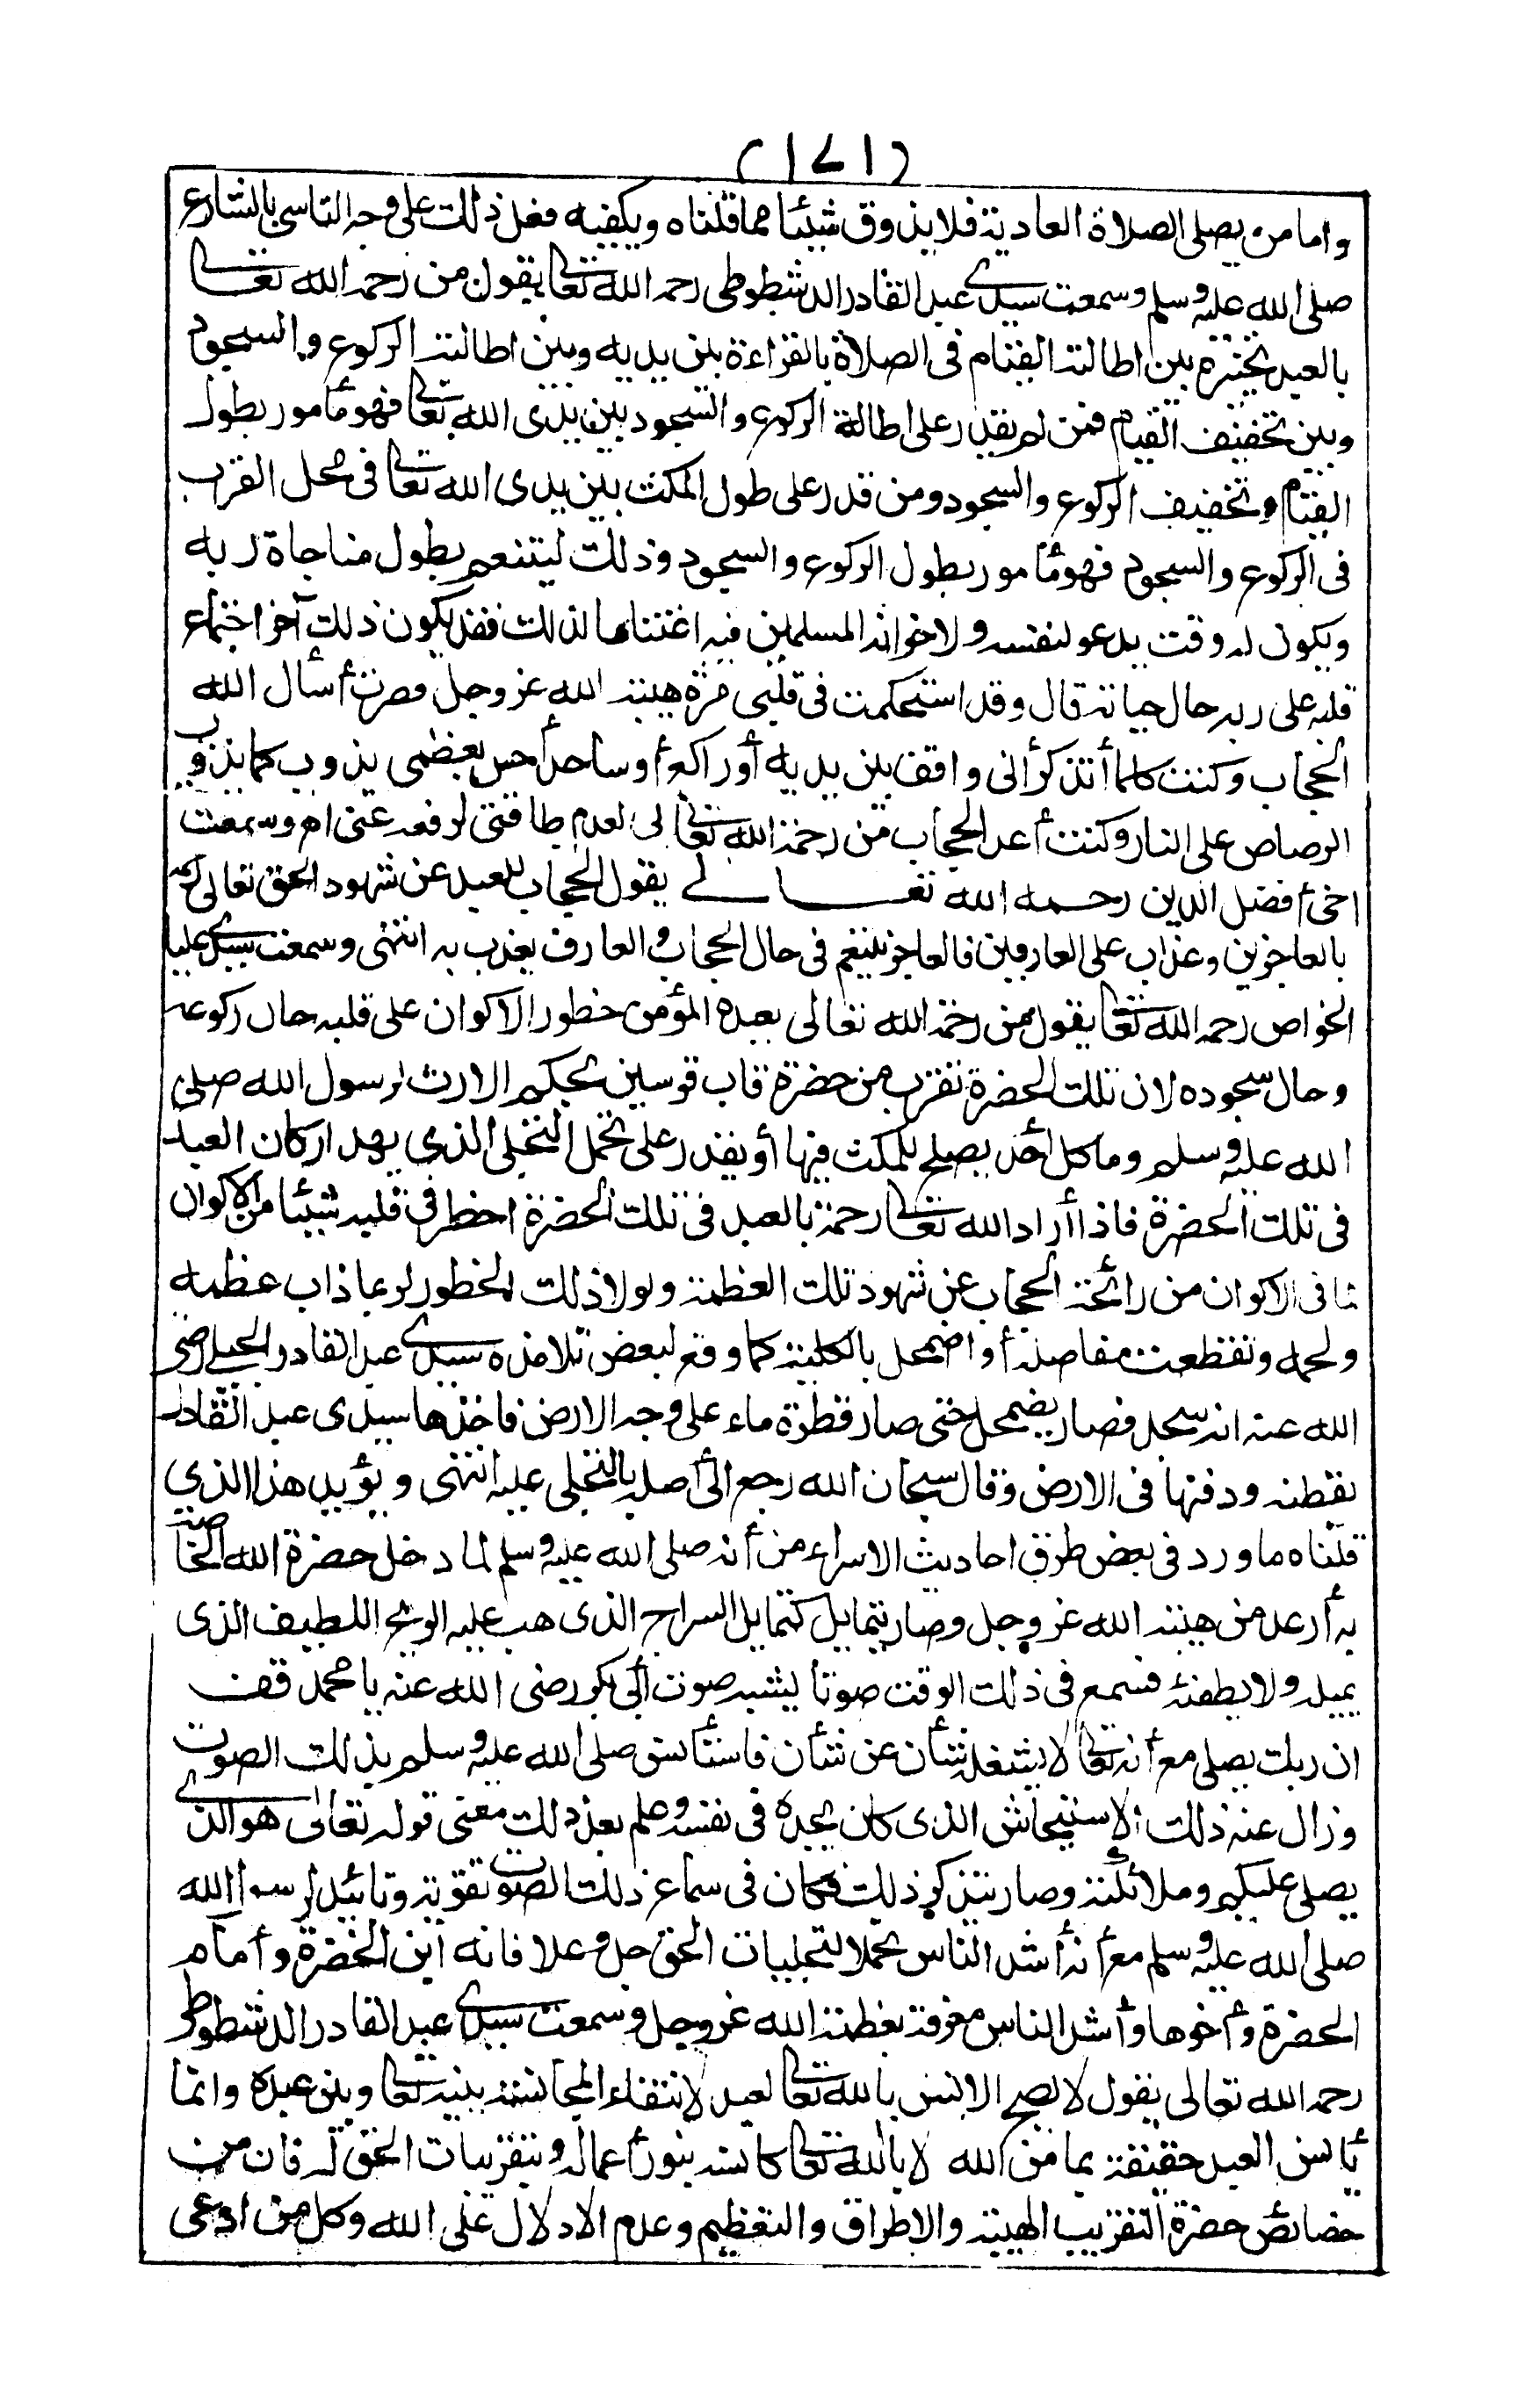 (١٧١)
واما من يصلى الصلاة العادية فلا يذوق شيئا مما قلناه ويكفيه فعل ذلك على وجه التاسى بالشارع
صلى الله عليه وسلم وسمعت سيدى عبد القادر الدشطوطى رحمه الله تعالى يقول من رحمة الله تعالى
بالعبد تخييره بين اطالته القيام فى الصلاة بالقراءة بين يديه وبين اطالته الركوع والسجود
وبين تخفيف القيام فمن لم يقدر على اطالة الركوع والسجود بين يدى الله تعالى فهو مأمور بطول
القيام وتخفيف الركوع والسجود ومن قدر على طول المكث بين يدى الله تعالى فى محل القرب
فى الركوع والسجود فهو مأمور بطول الركوع والسجود وذلك ليتنعم بطول مناجاة ربه
ويكون له وقت يدعو لنفسه ولاخوانه المسلمين فيه اغتناما لذلك فقد يكون ذلك آخر اجتماع
قلبه على ربه حال حياته قال وقد استحكمت فى قلبى مرة هيبة الله عز وجل فصرت أسأل الله
الحجاب وكنت كلما أتذكر أنى واقف بين يديه أو راكعا أو ساجدا أحس بعظمى يذوب كما يذوب
الرصاص على النار وكنت أعد الحجاب من رحمة الله تعالى لى لعدم طاقتى لرفعه عنى اهـ وسمعت
اخى أفضل الدين رحمه الله تعالى يقول الحجاب للعبد عن شهود الحق تعالى رحمة
بالعاجزين وعذاب على العارفين فالعاجز يتنعم فى حال الحجاب والعارف يعذب به انتهى وسمعت سيدى عليا
الخواص رحمه الله تعالى يقول من رحمة الله تعالى بعبده المؤمن خطور الاكوان على قلبه حال ركوعه
وحال سجوده لان تلك الحضرة تقرب من حضرة قاب قوسين بحكم الارث لرسول الله صلى
الله عليه وسلم وما كل أحد يصلح للمكث فيها أو يقدر على تحمل التجلى الذى يهد اركان العبد
فى تلك الحضرة فاذا أراد الله تعالى رحمة بالعبد فى تلك الحضرة اخطر فى قلبه شيئا من الاكوان
لما فى الاكوان من رائحة الحجاب عن شهود تلك العظمة ولولا ذلك الخطور لربما ذاب عظمه
ولحمه وتقطعت مفاصله أو اضمحل بالكلية كما وقع لبعض تلامذة سيدى عبد القادر الجيلى رضى
الله عنه انه سجد فصار يضمحل حتى صار قطرة ماء على وجه الارض فاخذها سيدى عبد القادر
بقطنة ودفنها فى الارض وقال سبحان الله رجع الى أصله بالتجلى عليه انتهى ويؤيد هذا الذى
قلناه ما ورد فى بعض طرق احاديث الاسراء من أنه صلى الله عليه وسلم لما دخل حضرة الله الخاصة
به أرعد من هيبة الله عز وجل وصار يتمايل كتمايل السراج الذى هب عليه الريح اللطيف الذى
يميله ولا يطفئه فسمع فى ذلك الوقت صوتا يشبه صوت أبى بكر رضى الله عنه يا محمد قف
ان ربك يصلى مع أنه تعالى لا يشغله شأن عن شأن فاستأنس صلى الله عليه وسلم بذلك الصوت
وزال عنه ذلك الاستيحاش الذى كان يجده فى نفسه وعلم بعد ذلك معنى قوله تعالى هو الذى
يصلى عليكم وملائكته وصار يتذكر ذلك فكان فى سماع ذلك الصوت تقوية وتأييد لرسول الله
صلى الله عليه وسلم مع أنه أشد الناس تحملا لتجليات الحق جل وعلا فانه ابن الحضرة وأمام
الحضرة وأخوها وأشد الناس معرفة بعظمة الله عز وجل وسمعت سيدى عبد القادر الدشطوطى
رحمه الله تعالى يقول لا يصح الانس بالله تعالى لعبد لانتفاء المجانسة بينه تعالى وبين عبده وانما
يأنس العبد حقيقة بما من الله لا بالله تعالى كانسه بنور أعماله وبتقريبات الحق له فان من
خصائص حضرة التقريب الهيبة والاطراق والتعظيم وعدم الادلال على الله وكل من ادعى